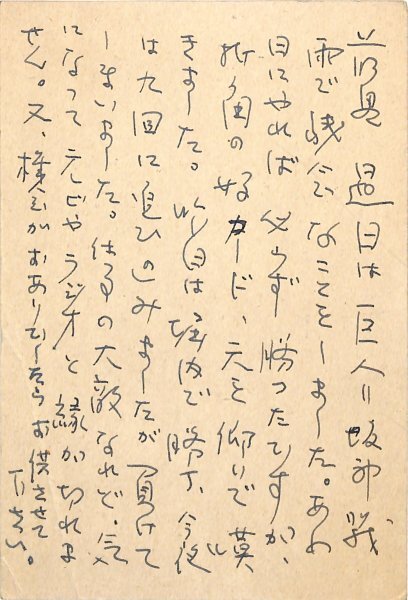 前略 過日は巨人‖阪神戦
雨で残念なことをしました。あの
日にやれば必らず勝つたですが、
折角の好カード、天を仰いで嘆
きました。昨日は堀内で勝ち、今夜
は九回に追ひこみましたが負けて
しまいました。仕事の大敵なれど、気
になつてテレビやラジオと縁が切れま
せん。又、機会がおありでしたらお供させて
下さい。